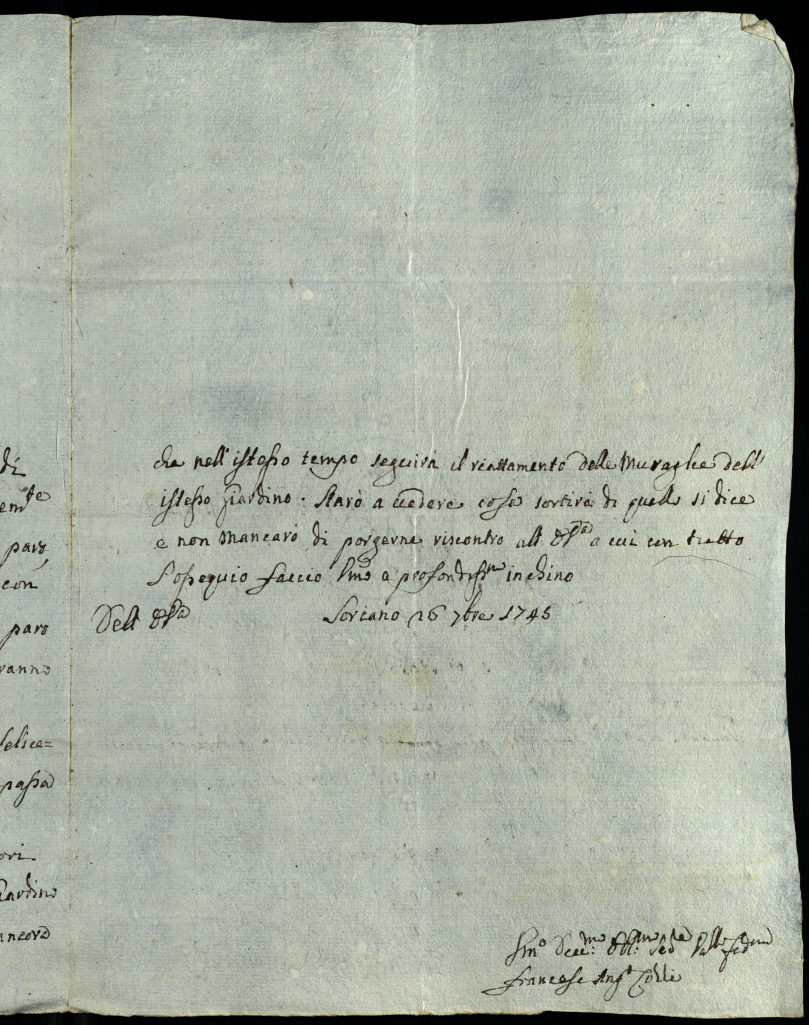 di
emte
paro,
con
paro
ranno
felice=
passa
ori
Giardino
ancora
che nell' istesso tempo seguirà il riattamento delle Muraglie dell'
istesso Giardino. Starò a vedere cosa sortirà di quello si dice
e non mancarò di porgerne riscontro all' a cui con tutto
l'ossequio faccio Umo e profondissmo inchino
Dell' Soriano 26 7bre 1745
Umo
Francesc Ango